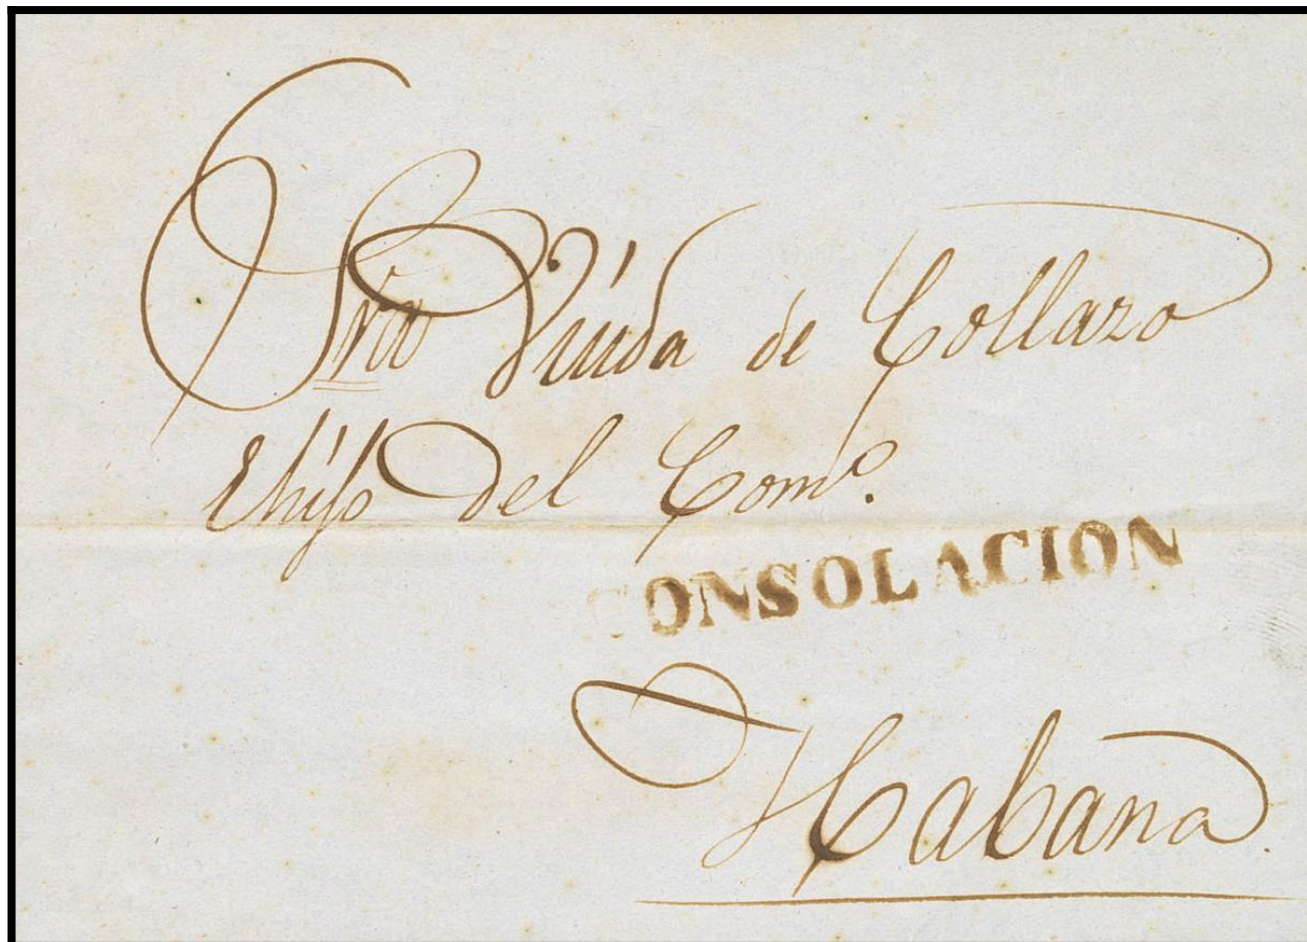 Sra Viuda de Collazo
E hijo del Comº.
CONSOLACION
Habana.